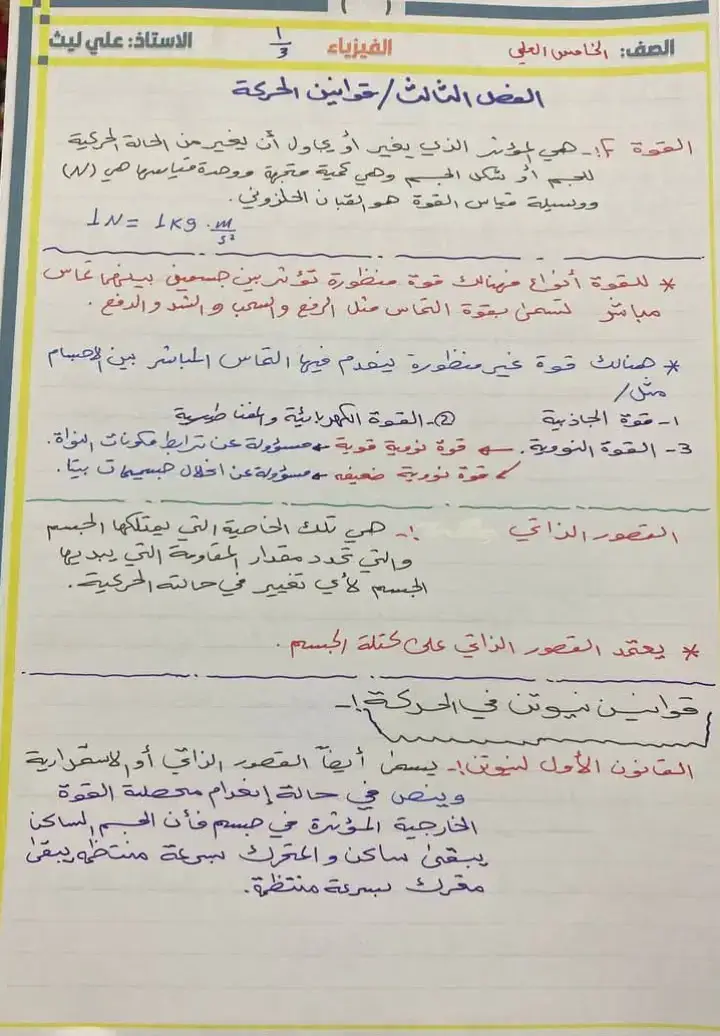 الصف: الخامس العلمي الفيزياء 1/3 الاستاذ: علي ليث
الفصل الثالث / قوانين الحركة
القوة F :- هي المؤثر الذي يغير أو يحاول أن يغير من الحالة الحركية
للجسم أو شكل الجسم وهي كمية متجهة ووحدة قياسها هي (N)
ووسيلة قياس القوة هو القبان الحلزوني.
1N = 1Kg . m/s²
* للقوة أنواع فهنالك قوة منظورة تؤثر بين جسمين بينهما تماس
مباشر لتسمى بقوة التماس مثل الرفع والسحب والشد والدفع.
* هنالك قوة غير منظورة ينعدم فيها التماس المباشر بين الاجسام
مثل/
1- قوة الجاذبية 2- القوة الكهربائية والمغناطيسية
3- القوة النووية. ← قوة نووية قوية ← مسؤولة عن ترابط مكونات النواة.
↙ قوة نووية ضعيفه ← مسؤولة عن انحلال جسيمات بيتا.
القصور الذاتي :- هي تلك الخاصية التي يمتلكها الجسم
والتي تحدد مقدار المقاومة التي يبديها
الجسم لأي تغيير في حالته الحركية.
* يعتمد القصور الذاتي على كتلة الجسم.
قوانين نيوتن في الحركة :-
القانون الأول لنيوتن :- يسمى أيضاً القصور الذاتي أو الاستقرارية
وينص في حالة إنعدام محصلة القوة
الخارجية المؤثرة في جسم فأن الجسم الساكن
يبقى ساكن و المتحرك بسرعة منتظمه يبقى
متحرك بسرعة منتظمة.